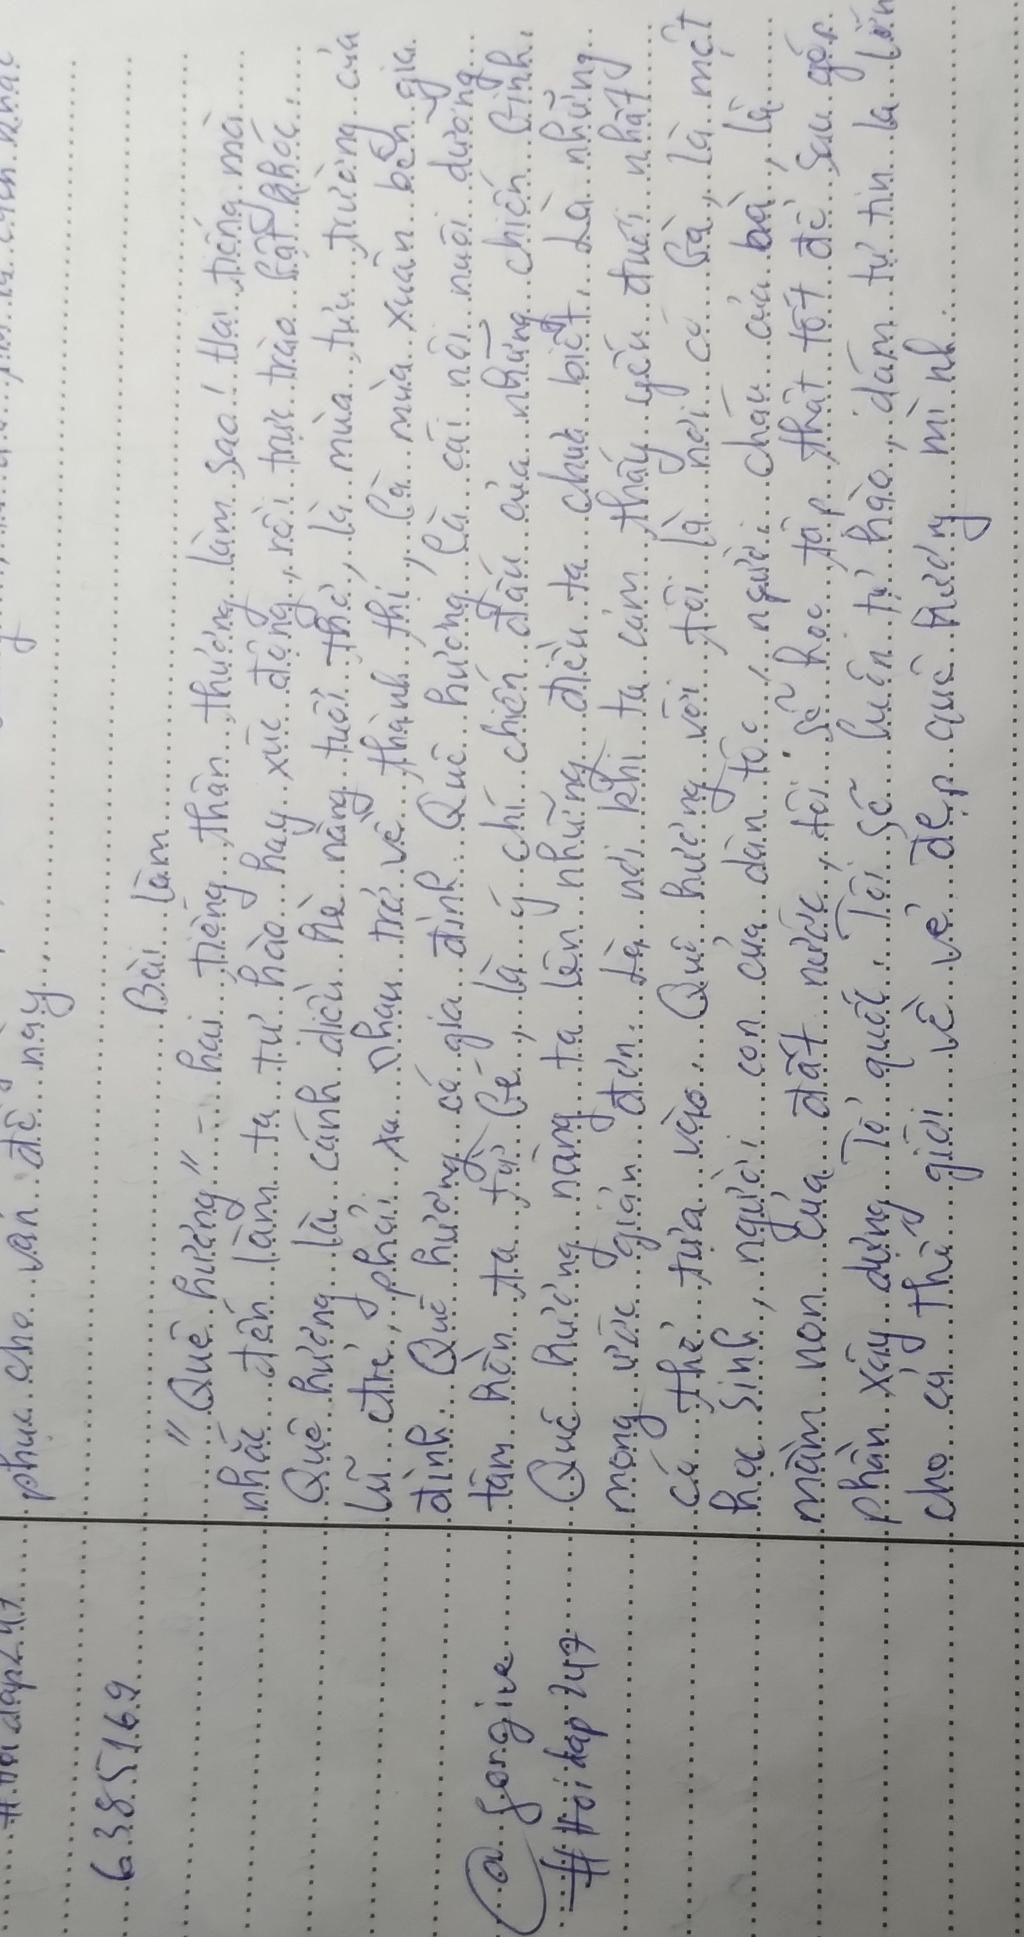 phục cho vấn đề này
Bài làm
6385169
"Quê hương" - hai tiếng thân thương làm sao! Hai tiếng mà
nhắc đến làm ta tự hào hay xúc động, rồi trực trào bật khóc.
Quê hương là cánh diều hè nâng tuổi thơ, là mùa tựu trường của
lũ trẻ, phải xa nhau trở về thành thị, là mùa xuân bên gia
đình. Quê hương có gia đình. Quê hương là cái nôi nuôi dưỡng
tâm hồn ta từ bé, là ý chí chiến đấu của những chiến binh.
Quê hương nâng ta lên những điều ta chưa biết. Là những
mong ước giản đơn. Là nơi khi ta cảm thấy yếu đuối nhất
có thể tựa vào. Quê hương với tôi là nơi có bà, là một
học sinh, người con của dân tộc, người cháu của bà, là
mầm non của đất nước, tôi sẽ học tập thật tốt để sau góp
phần xây dựng Tổ quốc. Tôi sẽ luôn tự hào, dám tự tin la lớn
cho cả thế giới về vẻ đẹp quê hương mình.
@gongive
#Hoidap247